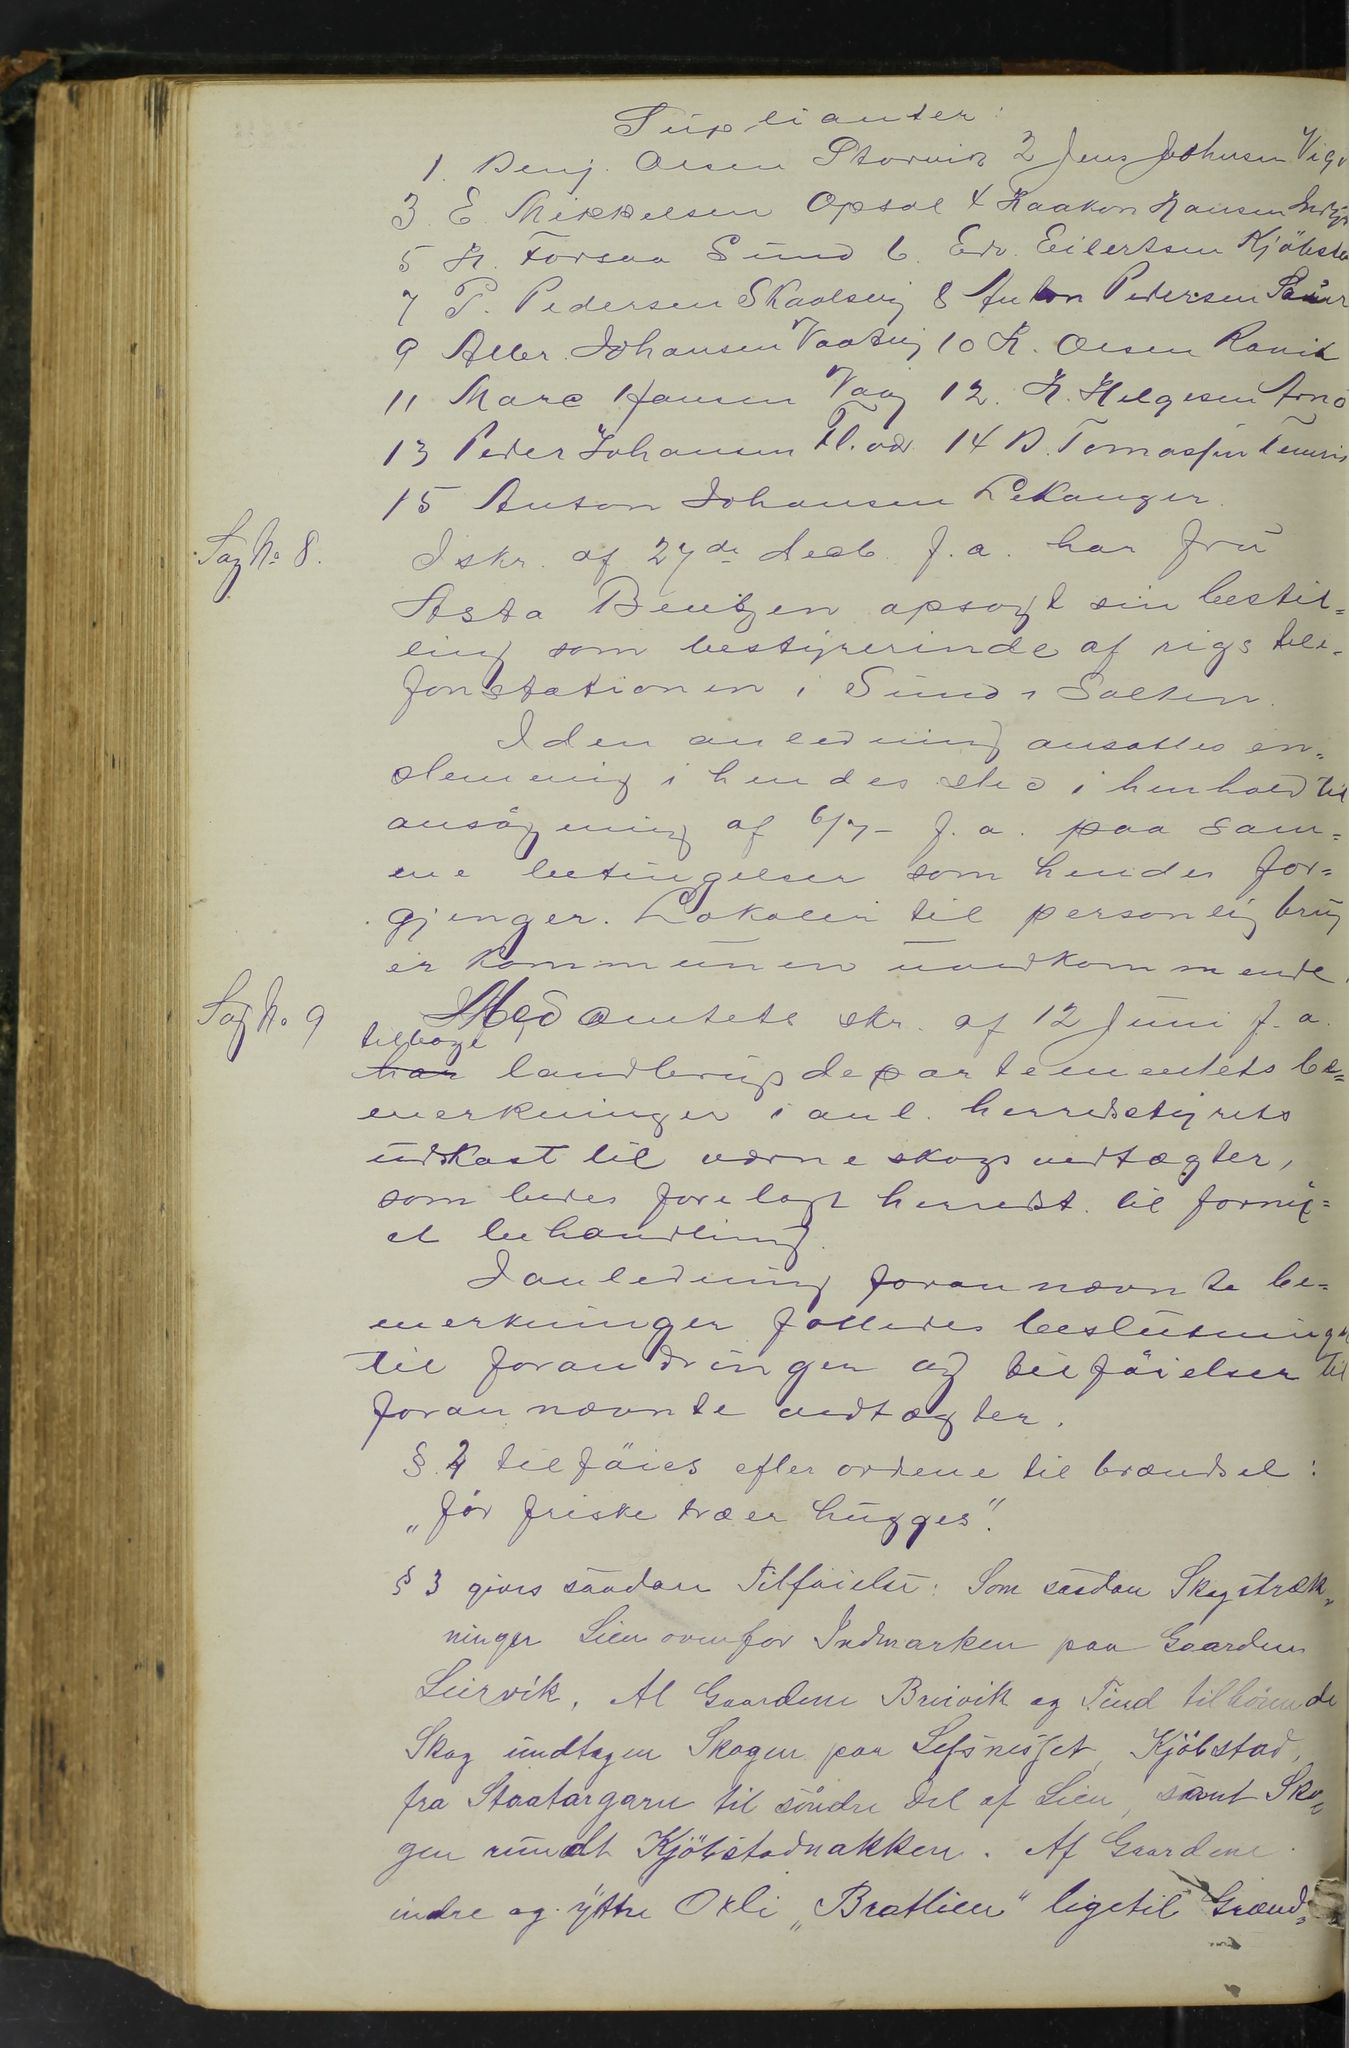 Suplianter:
1. Benj. Olsen Storvik 2 Jens Johnsen
3 E. Mikkelsen Opsal 4 Haakon Hansen
5 H. Forsaa Sund 6. Edv. Eilertsen Kjöbsta
7 P. Pedersen Skaalsvig 8 Anton Pedersen
9 Alber. Johansen 10 K. Olsen
11 Marc Hansen Vaag 12. H. Helgesen Arnö
13 Peder Johansen 14 B. Tomassen
15 Anton Johansen Lekanger.
Sag No 8. I skr. af 27de decb. f.a. har fru
Asta Bentzen opsagt sin bestil=
ling som bestyrerinde af rigstele=
fonstationen i Sund i Salten.
I den anledning ansattes en=
stemmig i hendes sted i henhold til
ansøgning af 6/7- f.a. paa sam=
me betingelser som hendes for=
gjenger. Lokaler til personlig brug
er kommunen uvedkommende.
Sag No 9 Med amtets skr. af 12 Juni f.a.
tilbage
har landbrugsdepartementets be=
merkninger i anl. herredstyrets
udkast til værneskogsvedtægter,
som bedes forelagt herredst. til forny=
et behandling.
I anledning forannævnte be=
merkninger fattedes beslutninger
til forandringer og tilföielser til
forannævnte vedtægter.
§ 2 tilföies efter ordene til brændsel:
„för friske træer hugges".
§ 3 gives saadan Tilföielse: Som saadan Skogstræk=
ninger Lien ovenfor Indmarken paa Gaarden
Leirvik. Al Gaardene Breivik og Tind tilhörende
Skog undtagen Skogen paa Selsnesset, Kjöbstad,
fra Staatargaren til söndre Del af Lien, samt Sko=
gen rundt Kjöbstadnakken. Af Gaardene
indre og yttre Oxli „Bratlien" ligetil Grænd=